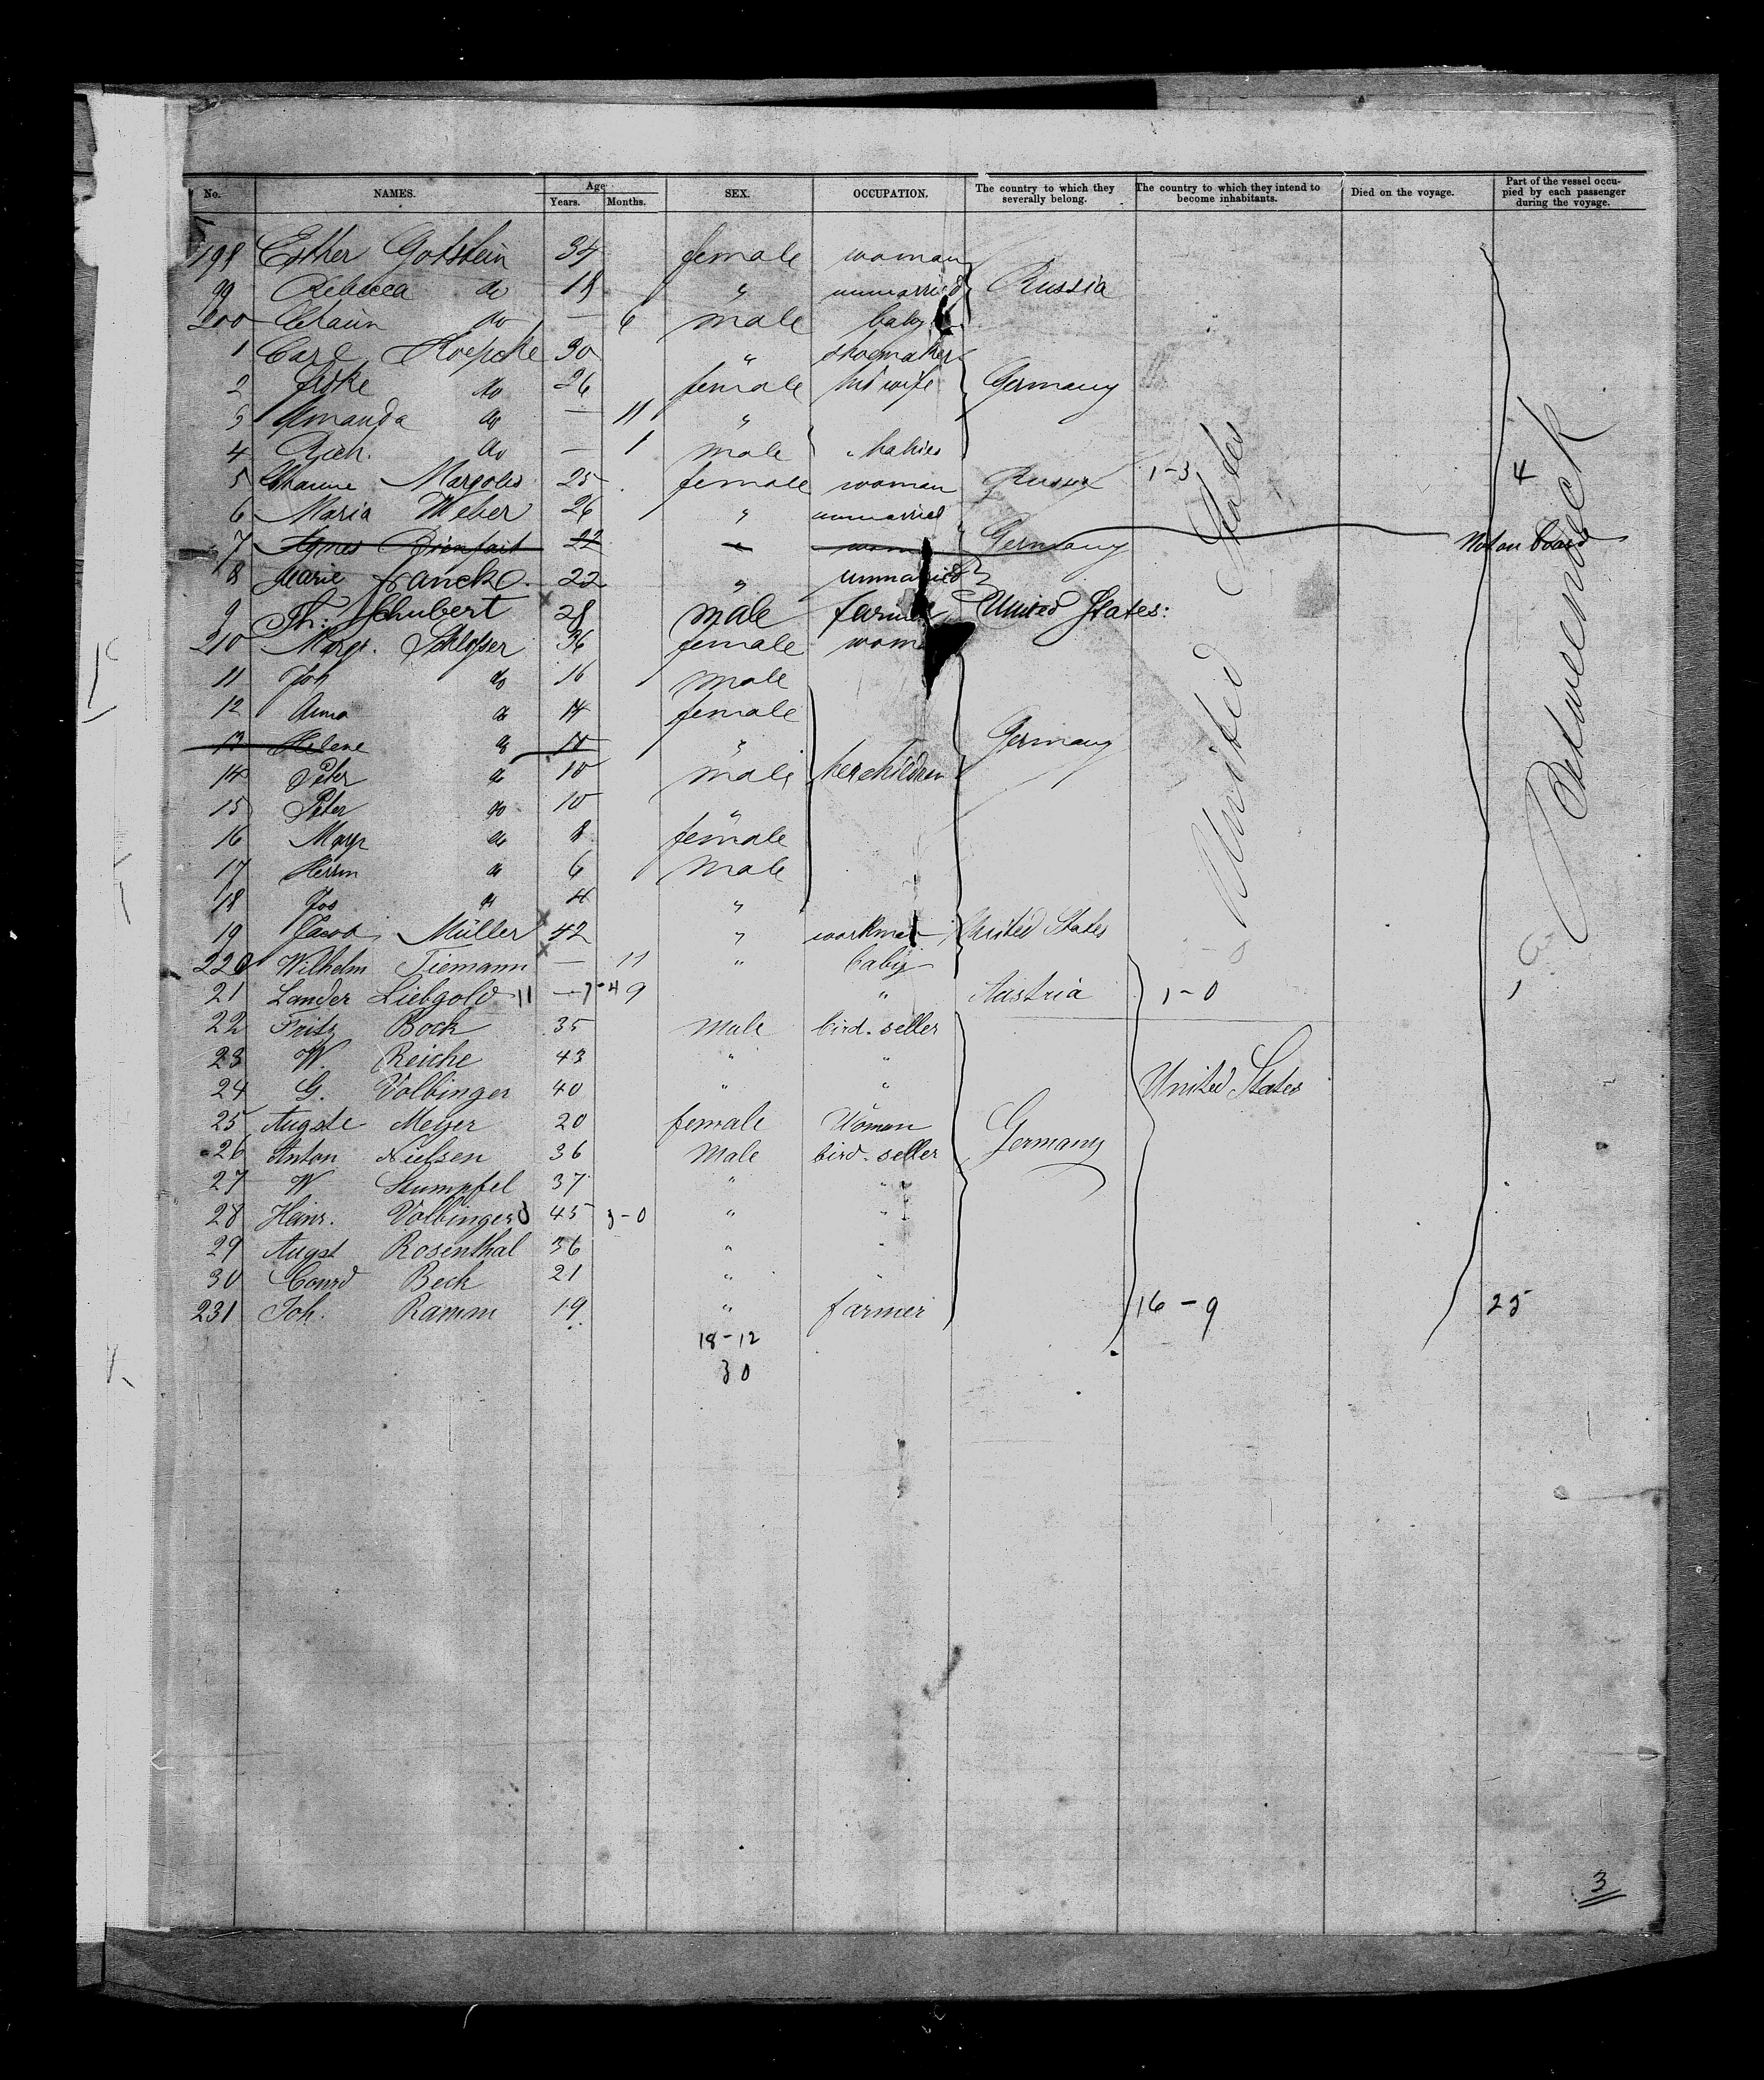 No. NAMES. Age Years. Months. SEX. OCCUPATION. The country to which they severally belong. The country to which they intend to become inhabitants. Died on the voyage. Part of the vessel occupied by each passenger during the voyage.
198 Esther Gotstein 34 female woman
99 Rebecca do 18 " unmarried Russia
200 Chaim do — 6 male baby
1 Carl Koepcke 30 " shoemaker
2 do 26 female his wife Germany
3 Amanda do — 11 "
4 Rich. do — 1 male babies
5 Margolis 25 female woman Russia 1-3 4
6 Maria Weber 26 " unmarried
7 Agnes Bienfait 22 " Germany Not on board
8 Marie Francke 22 " unmarried
9 Th: Schubert 28 male farmer United States:
210 Margr. Schlosser 36 female woman
11 Joh do 16 male
12 Anna do 14 female
13 Helene do " Germany
14 Peter do 10 male her children
15 Peter do 10 "
16 Margr do 8 female
17 Herm do 6 male
18 Jos do 4 "
19 Jacob Müller 42 " workman United States
220 Wilhelm Tiemann — 11 " baby
21 Lander Liebgold 11 — 9 " Austria 1-0
22 Fritz Bock 35 Male bird-seller
23 W. Reiche 43 " "
24 G. Volbinger 40 " " United States
25 Auguste Meyer 20 female Woman Germany
26 Anton Nielsen 36 Male bird-seller
27 W Stumpfel 37 " "
28 Heinr. Volbinger 45 3-0 " "
29 Augst Rosenthal 36 " "
30 Conrd Beck 21 " "
231 Joh. Ramm 19 " farmer 16-9 25
18-12
30
United States
Betweendeck
3